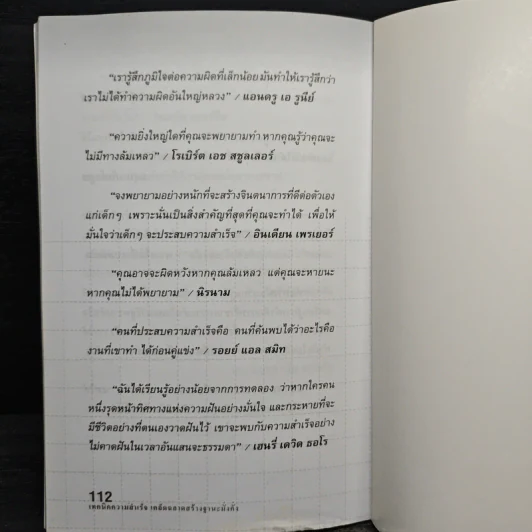 “เรารู้สึกภูมิใจต่อความผิดที่เล็กน้อย มันทำให้เรารู้สึกว่า
เราไม่ได้ทำความผิดอันใหญ่หลวง” / แอนดรู เอ รูนีย์
“ความยิ่งใหญ่ใดที่คุณจะพยายามทำ หากคุณรู้ว่าคุณจะ
ไม่มีทางล้มเหลว” / โรเบิร์ต เอช สชูลเลอร์
“จงพยายามอย่างหนักที่จะสร้างจินตนาการที่ดีต่อตัวเอง
แก่เด็กๆ เพราะนั่นเป็นสิ่งสำคัญที่สุดที่คุณจะทำได้ เพื่อให้
มั่นใจว่าเด็กๆ จะประสบความสำเร็จ” / อินเดียน เพรเยอร์
“คุณอาจจะผิดหวังหากคุณล้มเหลว แต่คุณจะหายนะ
หากคุณไม่ได้พยายาม” / นิรนาม
“คนที่ประสบความสำเร็จคือ คนที่ค้นพบได้ว่าอะไรคือ
งานที่เขาทำ ได้ก่อนคู่แข่ง” / รอยย์ แอล สมิท
“ฉันได้เรียนรู้อย่างน้อยจากการทดลอง ว่าหากใครคน
หนึ่งรุดหน้าทิศทางแห่งความฝันอย่างมั่นใจ และกระหายที่จะ
มีชีวิตอย่างที่ตนเองวาดฝันไว้ เขาจะพบกับความสำเร็จอย่าง
ไม่คาดฝันในเวลาอันแสนจะธรรมดา” / เฮนรี่ เดวิด ธอโร
112
เทคนิคความสำเร็จ เคล็ดฉลาดสร้างฐานะมั่งคั่ง